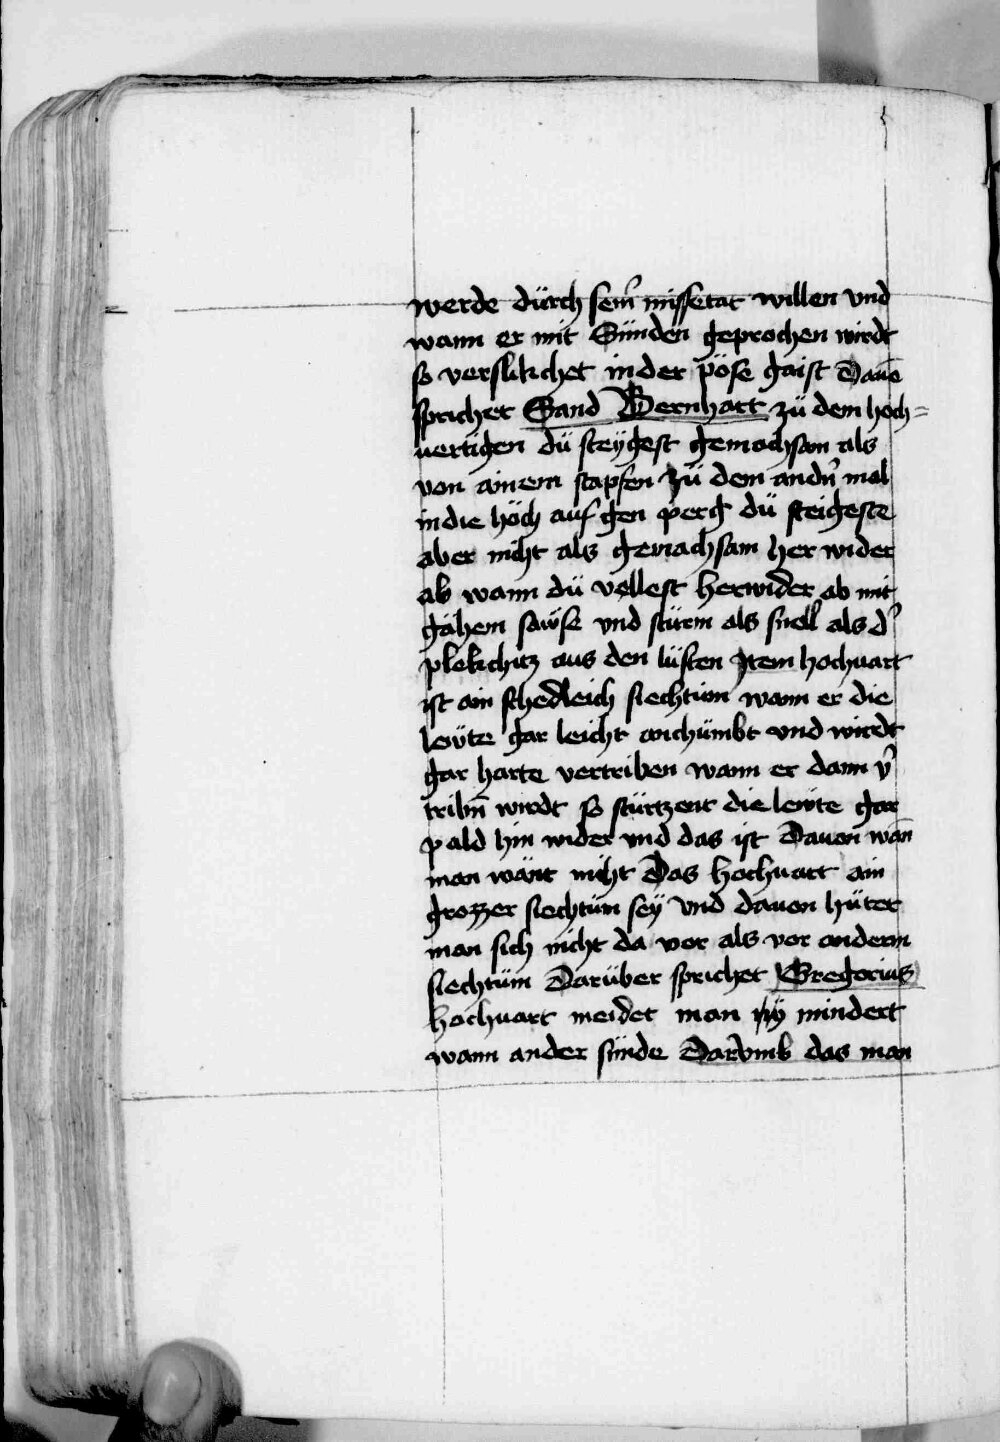 werde dürch sein̄ missetat willen vnd
wann er mit Sünden geprochen wirdt
so verslikchet in der pöse gaist Dauō
sprichet Sand Bernhart zü dem hoch=
uertigen dü steÿgest gemachsam als
von ainem stapfen zü dem andn̄ mal
in die höch auf gen perg dü steigeste
aber nicht als gemachsam her wider
ab wann dü vellest herwider ab mit
gähem sawse vnd stürm als snell als d̄
plekchitz aus den lüften Item hochuart
ist ain schedleich siechtüm wann er die
lewte gar leicht anchümbt vnd wirdt
gar harte vertriben wann er dann v̄
tribn̄ wirdt so stürtzent die lewte gar
pald hin wider vnd das ist Dauon wan̄
man wänt nicht Das hochuart ain
grozzer siechtüm seÿ vnd dauon hütet
man sich nicht da vor als vor anderm
siechtüm Darüber sprichet Gregorius
hochuart meidet man ÿ mindert
wann ander sünde Darvmb das man